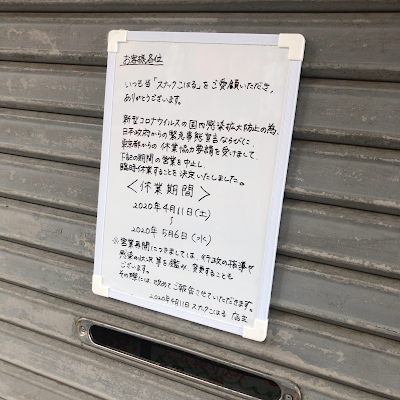 お客様各位
いつも当「スナックこはる」をご愛顧いただき、
ありがとうございます。
新型コロナウイルスの国内感染拡大防止の為、
日本政府からの緊急事態宣言ならびに、
東京都からの休業協力要請を受けまして、
下記の期間の営業を中止し、
臨時休業することを決定いたしました。
<休業期間>
2020年4月11日(土)
~
2020年5月6日(水)
※営業再開につきましては、行政の指導や
感染の状況等を鑑み、変更することも
ございます。
その際には、改めてご報告させていただきます。
2020年4月11日 スナックこはる 店主